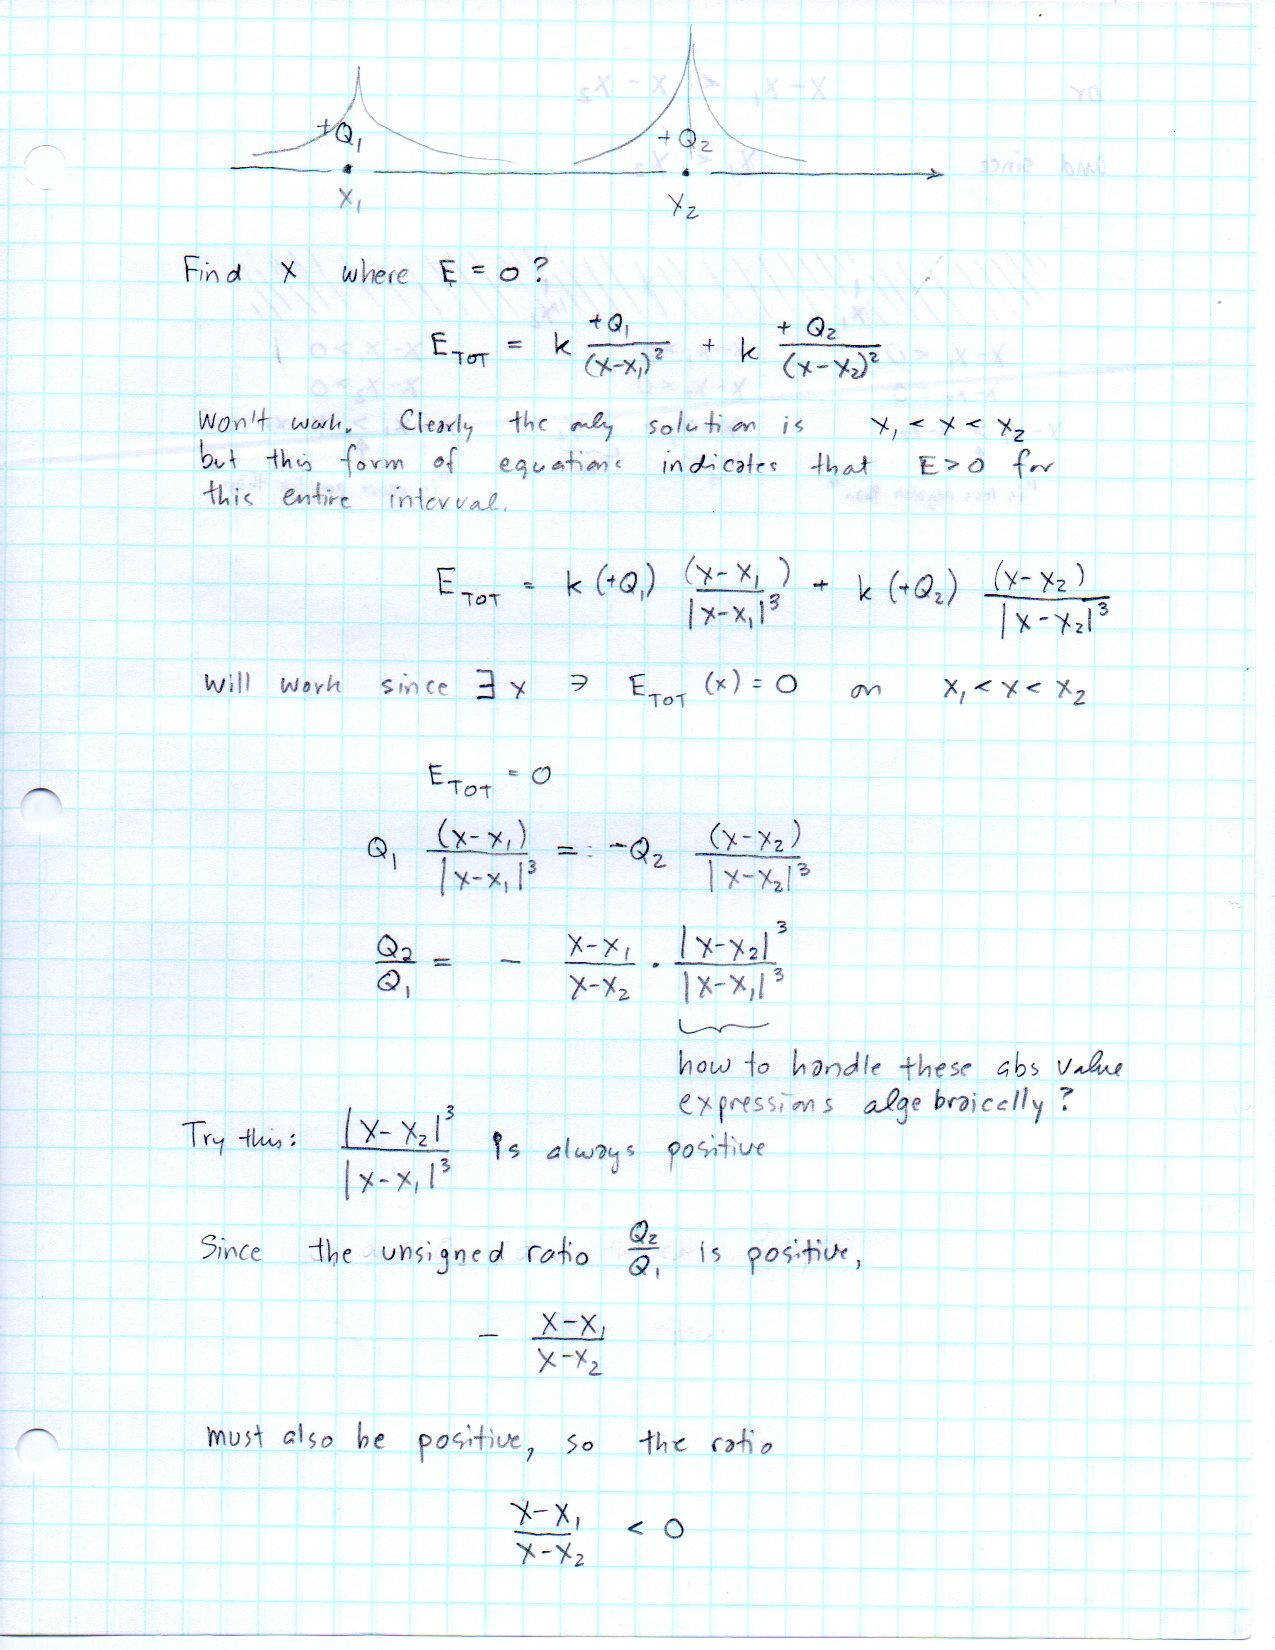 +Q₁ +Q₂
x₁ x₂
Find x where E = 0?
E_TOT = k +Q₁/(x-x₁)² + k +Q₂/(x-x₂)²
Won't work. Clearly the only solution is x₁ < x < x₂
but this form of equations indicates that E>0 for
this entire interval.
E_TOT = k (+Q₁) (x-x₁)/|x-x₁|³ + k (+Q₂) (x-x₂)/|x-x₂|³
Will work since ∃ x ∋ E_TOT (x) = 0 on x₁ < x < x₂
E_TOT = 0
Q₁ (x-x₁)/|x-x₁|³ = -Q₂ (x-x₂)/|x-x₂|³
Q₂/Q₁ = - x-x₁/x-x₂ · |x-x₂|³/|x-x₁|³
how to handle these abs value
expressions algebraically?
Try this: |x-x₂|³/|x-x₁|³ is always positive
Since the unsigned ratio Q₂/Q₁ is positive,
- x-x₁/x-x₂
must also be positive, so the ratio
x-x₁/x-x₂ < 0